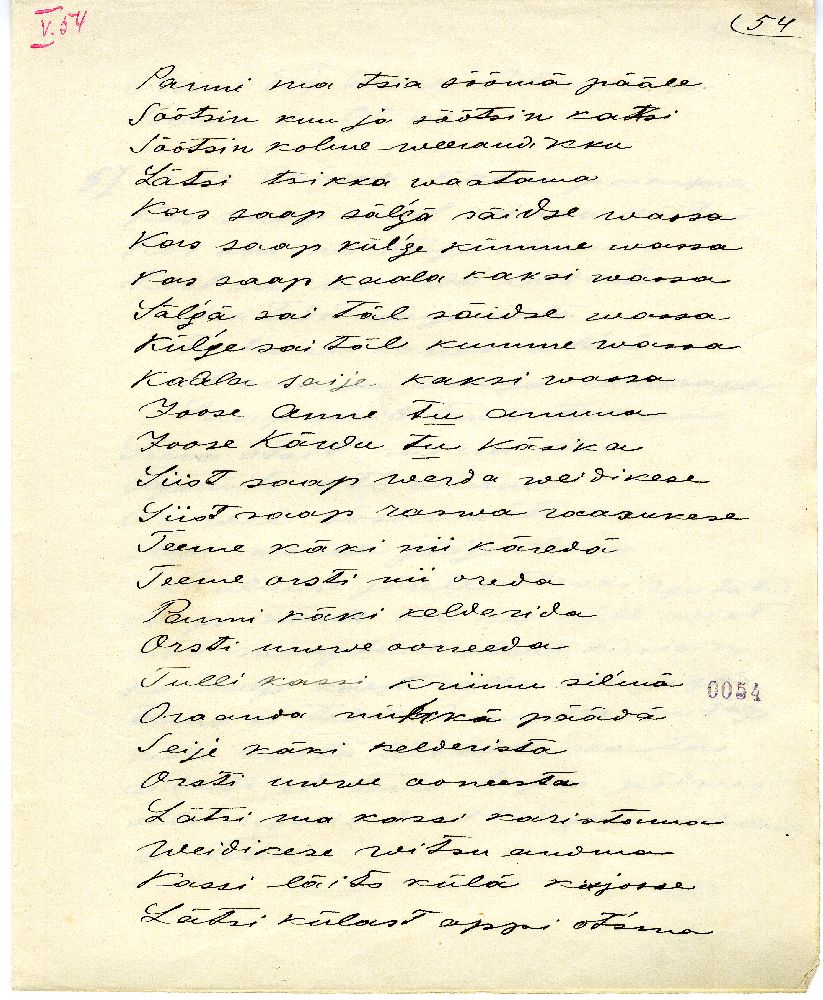 V. 54
54
Panni ma tsia söömä pääle
Söötsin kuu ja söötsin katsi
Söötsin kolme weerandikku
Lätsi tsikka waatama
Kas saap sälgä säidse wassa
Kas saap külge kümme wassa
Kas saap kaala kaksi wassa
Sälgä sai täl säidse wassa
Külge sai täl kumme wassa
Kaala saije kaksi wassa
Joose Anne tu amma
Joose Kärdu tu käsika
Siist saap werda weidikese
Siist saap raswa raasukese
Teeme käki nii käredä
Teeme orsti nii oreda
Panni käki kelderida
Orsti uwwe ooneeda
Tulli kassi kriimu silmä
Oraanda päädä
Seije käki kelderista
Orsti uwwe ooneesta
Lätsi ma kassi karistama
Weidikese witsu andma
Kassi läits külä
Lätsi külast appi otsma
0054